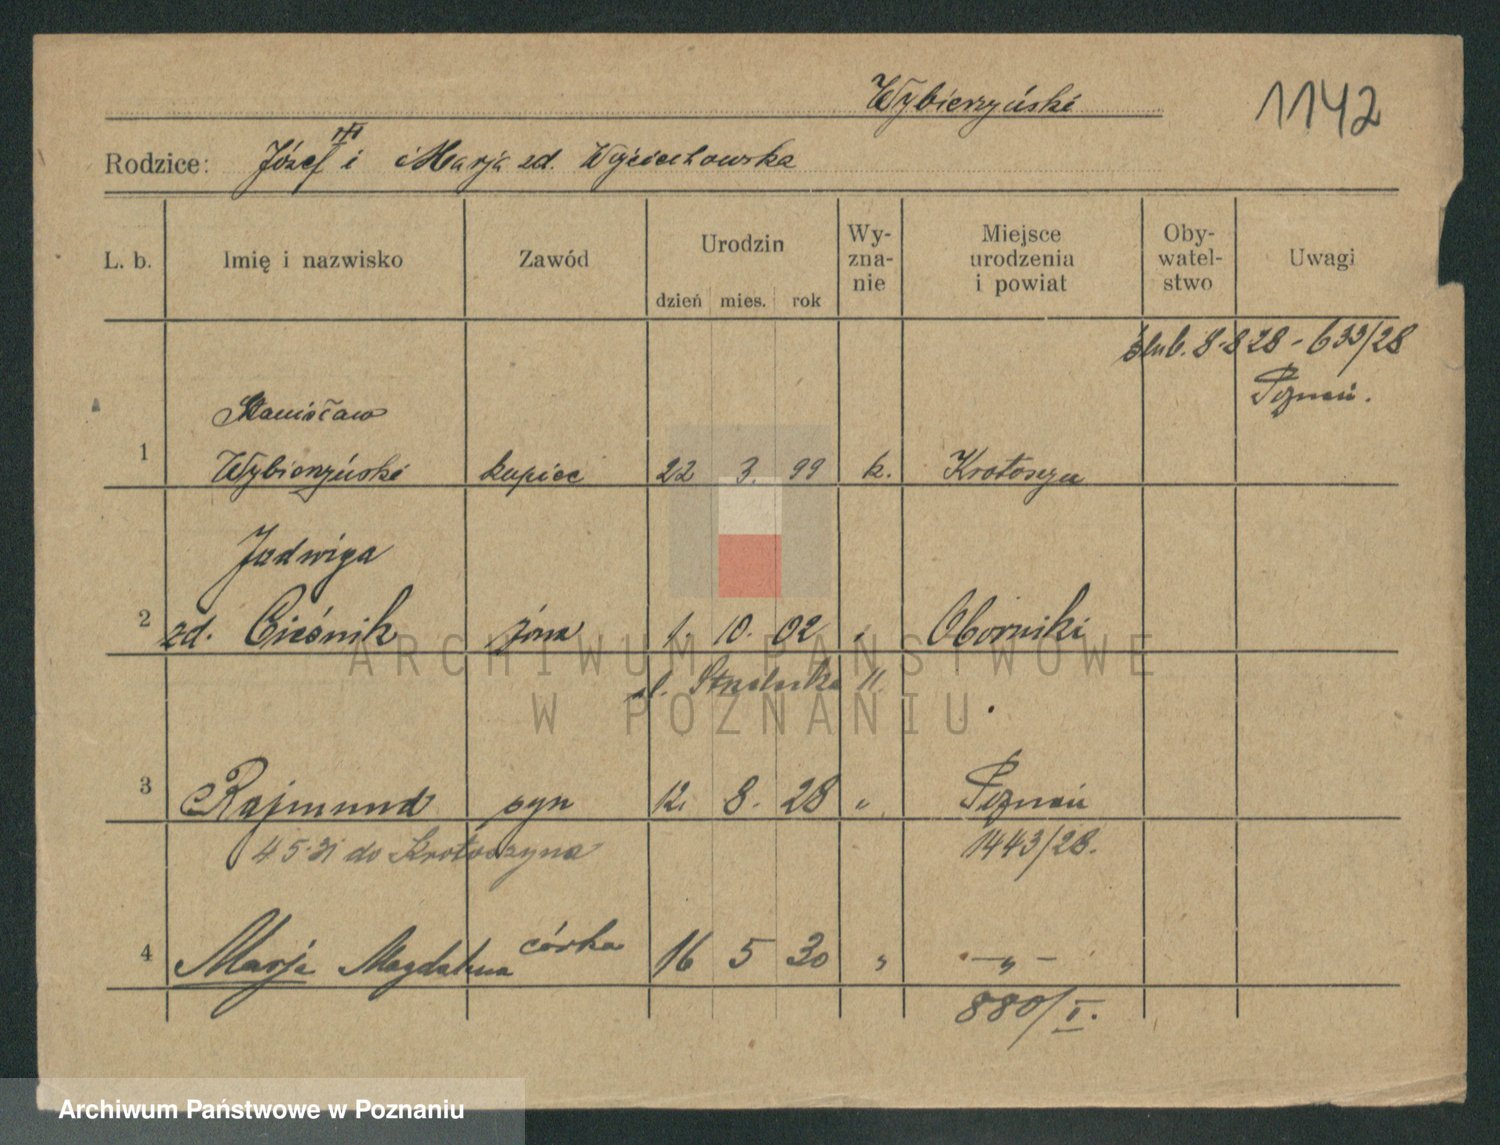 Wybierzyński
1142
Rodzice: Józef i Marja zd. Wojciechowska
L. b.
Imię i nazwisko
Zawód
Urodzin
dzień mies. rok
Wy-
zna-
nie
Miejsce
urodzenia
i powiat
Oby-
watel-
stwo
Uwagi
ślub. 8.8 28 - 633/28
Poznań.
Stanisław
1 Wybierzyński kupiec 22 3. 99 k. Krotoszyn
Jadwiga
2 zd. Cieśnik żona 1. 10. 02 " Oborniki
ARCHIWUM PAŃSTWOWE
ul. Strzelecka 11.
W POZNANIU
3 Rajmund syn 12. 8. 28 " Poznań
4 5.31 do Krotoszyna 1443/28.
4 Marja Magdalena córka 16 5 30 " - " -
880/I.
Archiwum Państwowe w Poznaniu